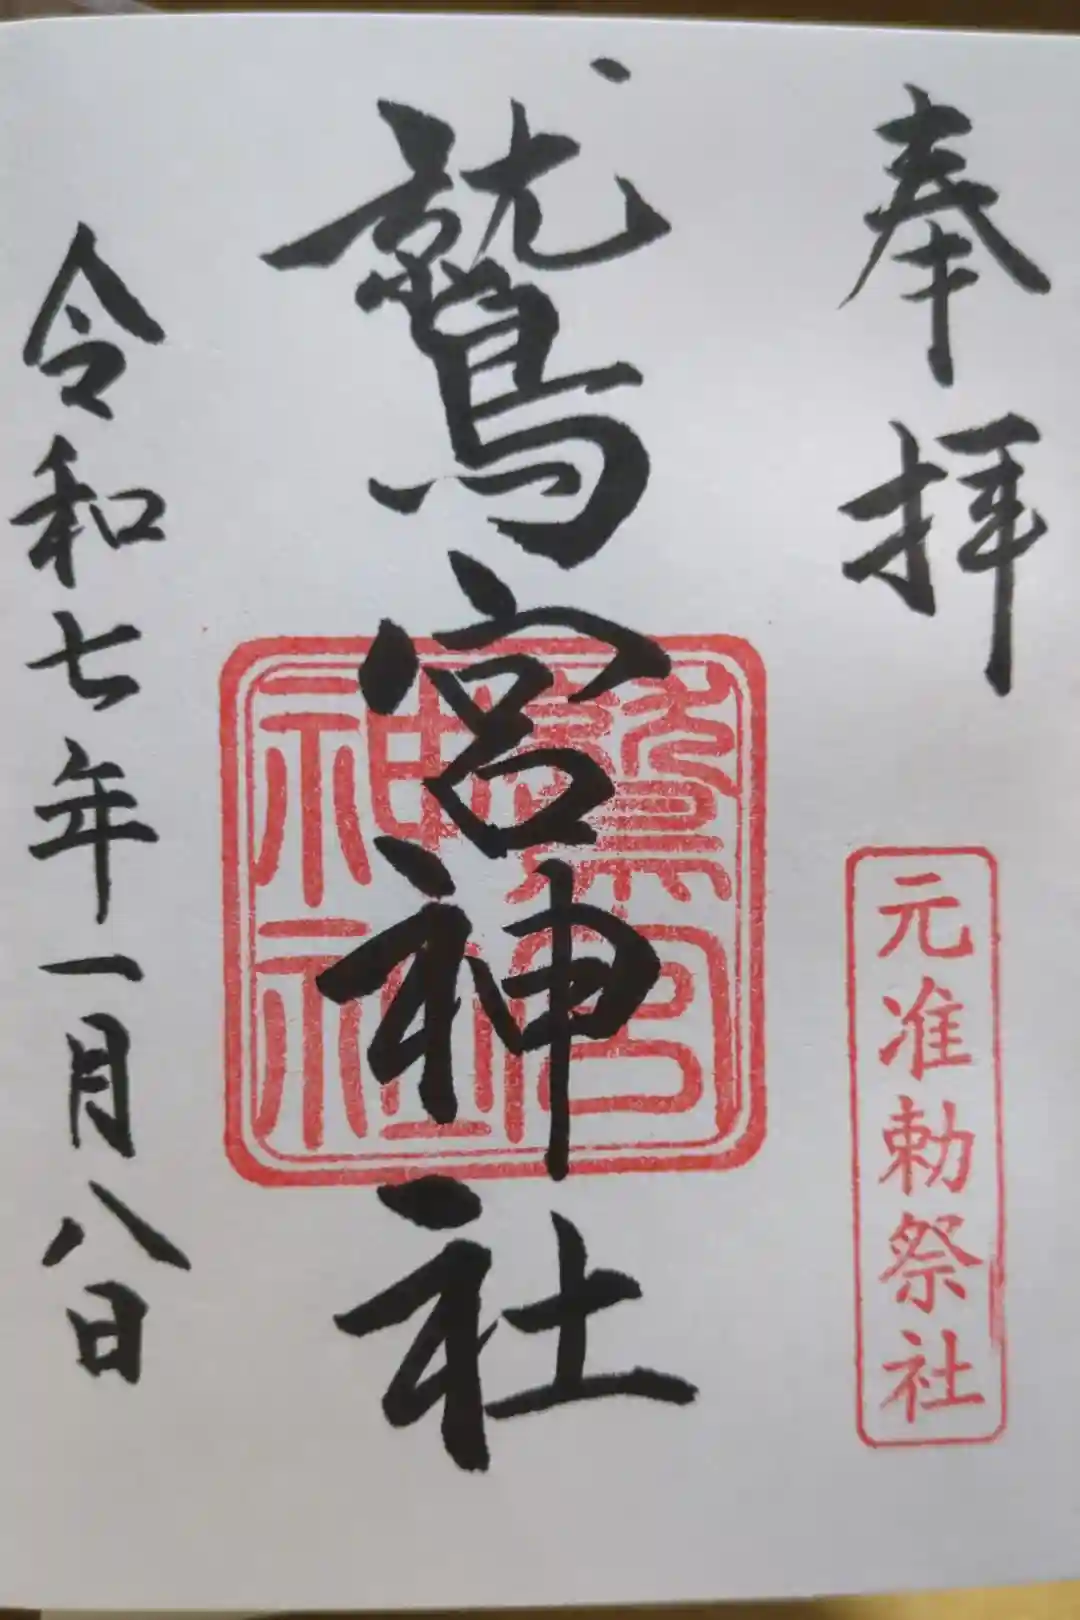 奉拝
元准勅祭社
鷲宮神社
鷲宮
神社
令和七年一月八日